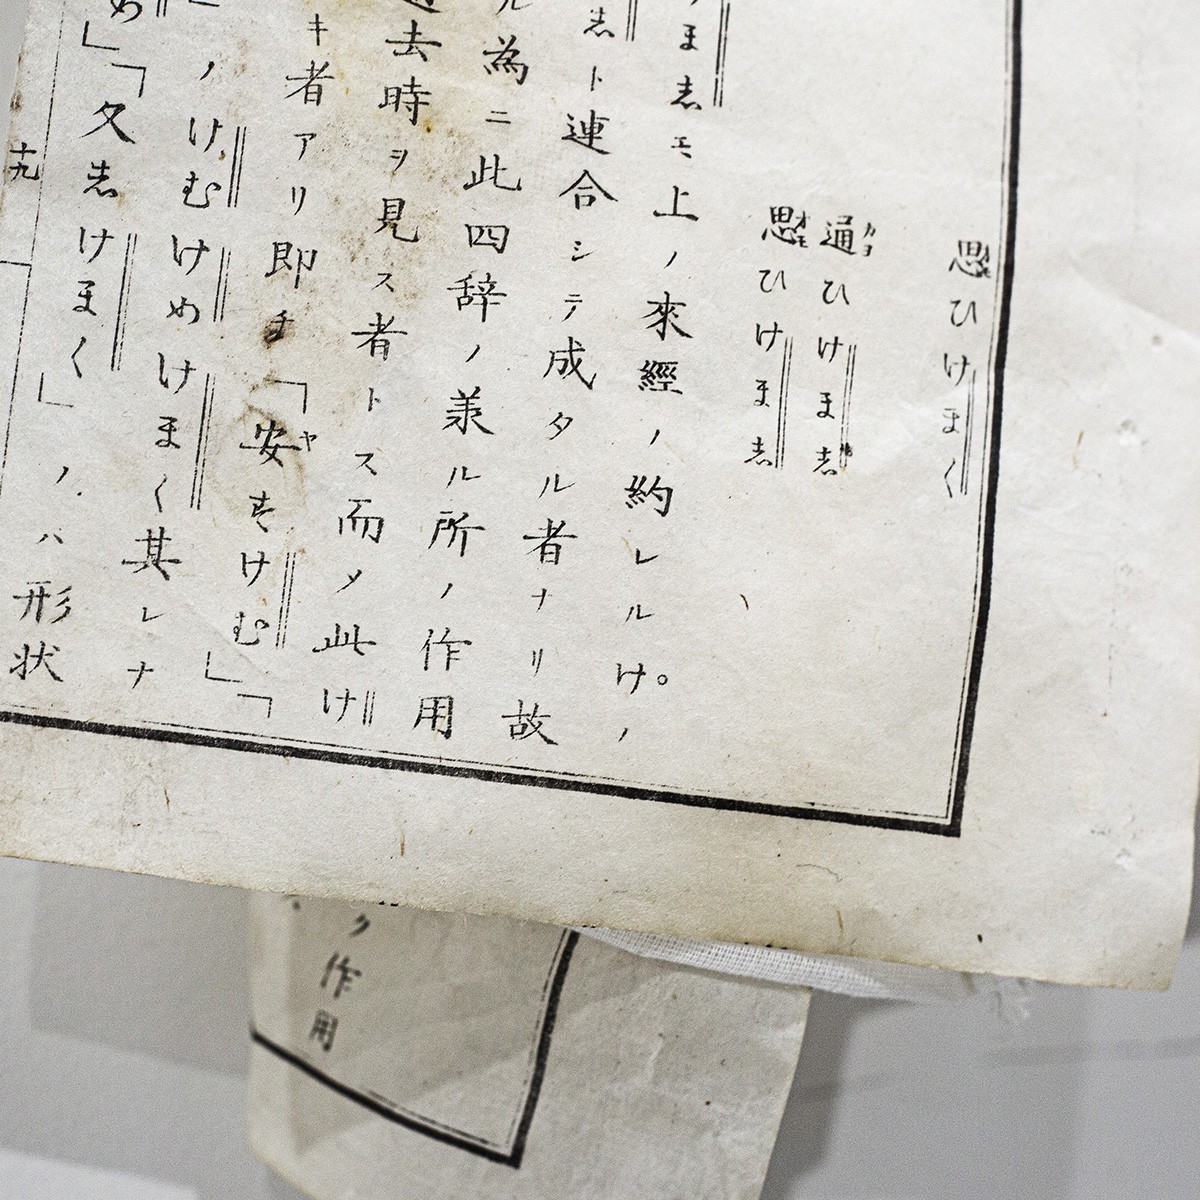 思ひけまく
通ひけま志
思ひけま志
ま志モ上ノ來經ノ約レルけ。ノ
志ト連合シテ成タル者ナリ故
ル為ニ此四辞ノ兼ル所ノ作用
過去時ヲ見ス者トス而メ此け
キ者アリ即チ「安すけむ」「
ノけむけめけまく其レナ
め」「久志けまく」ノハ形状
十九
ク作用